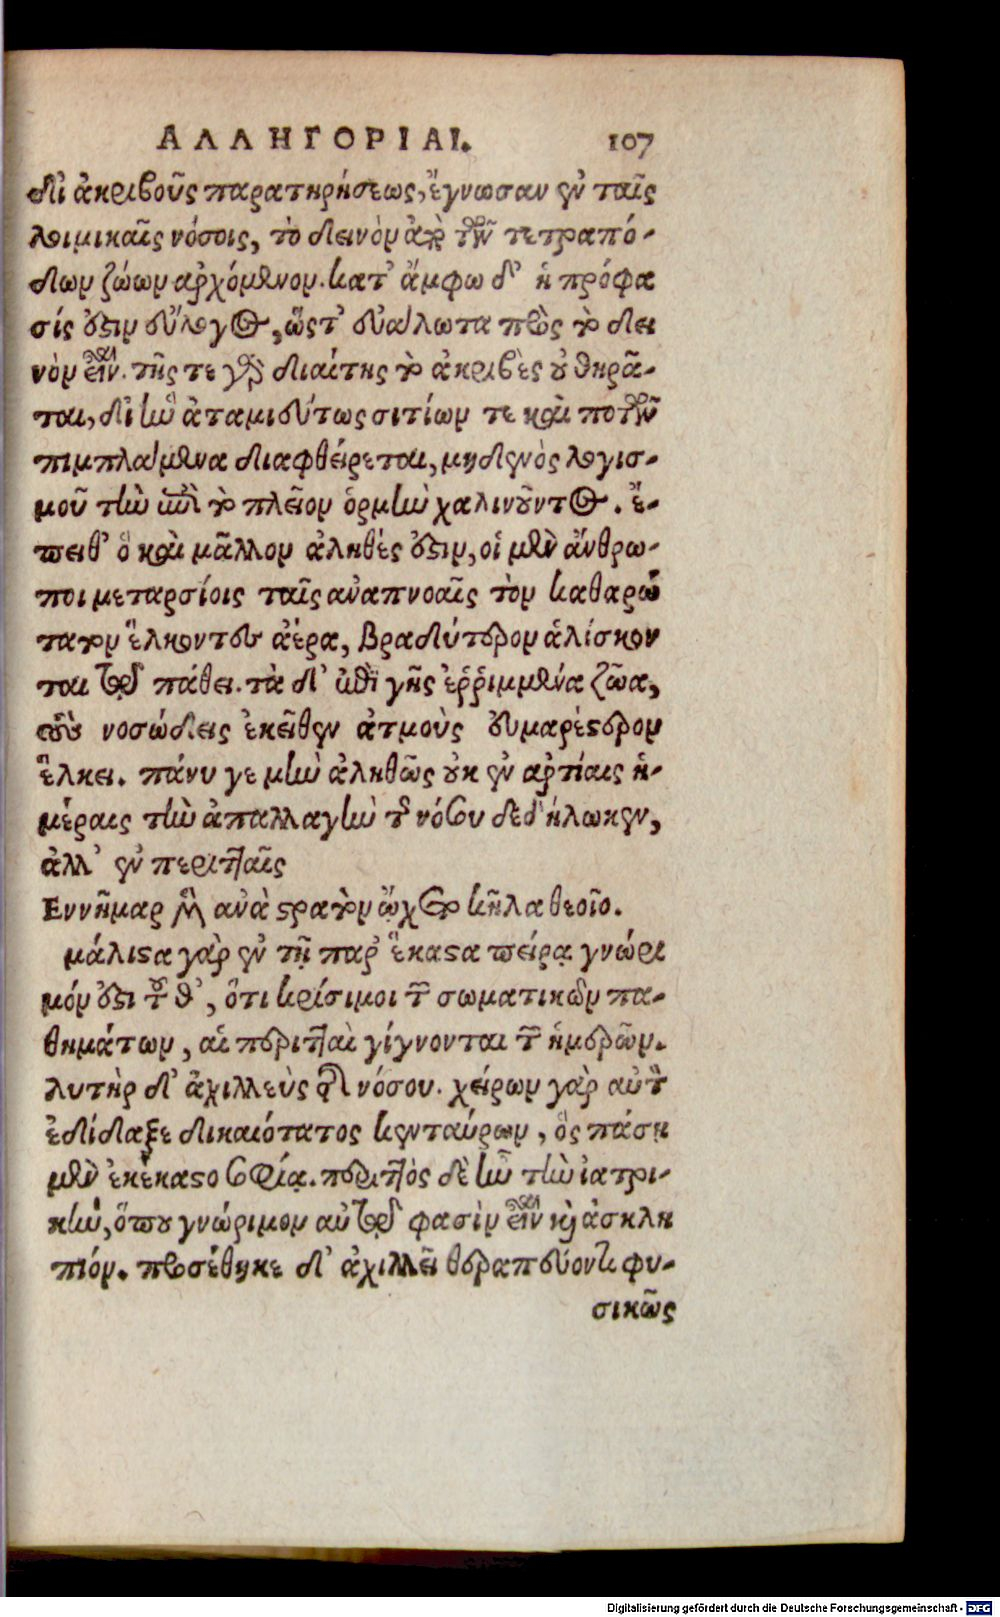 ΑΛΛΗΓΟΡΙΑΙ. 107
δι ἀκριβοῦς παρατηρήσεως, ἔγνωσαν ἐν ταῖς
λοιμικαῖς νόσοις, τὸ δεινὸν ἀπὸ τῶν τετραπό-
δων ζώων ἀρχόμενον. κατ' ἄμφω δ' ἡ πρόφα
σίς ἐστιν εὔλογος, ὥστ' εὐάλωτα πρὸς τὸ δει
νὸν εἶναι. τῆς τε γὰρ διαίτης τὸ ἀκριβὲς οὐ θηρᾶ-
ται, δι ἣν ἀταμιεύτως σιτίων τε καὶ ποτῶν
πιμπλάμενα διαφθείρεται, μηδενὸς λογισ-
μοῦ τὴν ἐπὶ τὸ πλεῖον ὁρμὴν χαλινοῦντος. ἔ-
πειθ' ὃ καὶ μᾶλλον ἀληθές ἐστιν, οἱ μὲν ἄνθρω-
ποι μεταρσίοις ταῖς ἀναπνοαῖς τὸν καθαρώ
τατον ἕλκοντες ἀέρα, βραδύτερον ἁλίσκον
ται τῷ πάθει. τὰ δ' ἐπὶ γῆς ἐῤῥιμμένα ζῶα,
τοὺς νοσώδεις ἐκεῖθεν ἀτμοὺς εὐμαρέστερον
ἕλκει. πάνυ γε μὴν ἀληθῶς οὐκ ἐν ἀρτίαις ἡ-
μέραις τὴν ἀπαλλαγὴν τοῦ νόσου δεδήλωκεν,
ἀλλ' ἐν περιτταῖς
Εννῆμαρ μὲν ἀνὰ στρατὸν ᾤχετο κῆλα θεοῖο.
μάλιστα γὰρ ἐν τῇ παρ' ἕκαστα πείρᾳ γνώρι
μόν ἐστι τοῦθ', ὅτι κρίσιμοι τῶν σωματικῶν πα-
θημάτων, αἱ περιτταὶ γίγνονται τῶν ἡμερῶν.
λυτὴρ δ' ἀχιλλεὺς τῆς νόσου. χείρων γὰρ αὐτὸν
ἐδίδαξε δικαιότατος κενταύρων, ὃς πάσῃ
μὲν ἐκέκαστο σοφίᾳ. περιττὸς δὲ ἦν τὴν ἰατρι-
κὴν, ὅπου γνώριμον αὐτῷ φασὶν εἶναι καὶ ἀσκλη
πιόν. προσέθηκε δ' ἀχιλλεῖ θεραπεύοντι φυ-
σικῶς
Digitalisierung gefördert durch die Deutsche Forschungsgemeinschaft - DFG